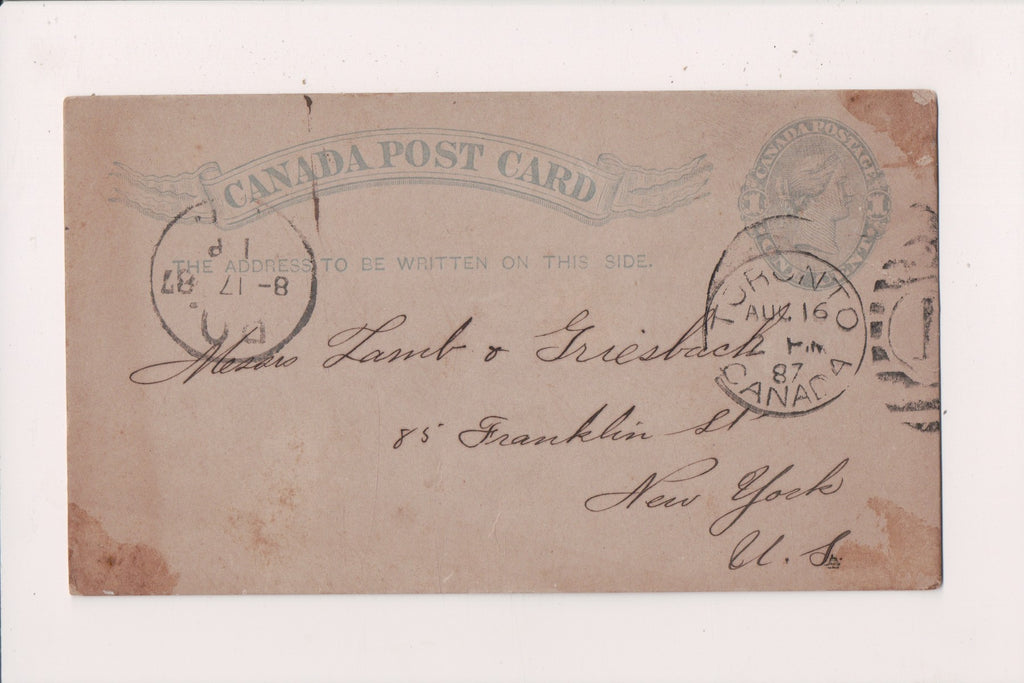 CANADA POST CARD
CANADA POSTAGE
1 1
THE ADDRESS TO BE WRITTEN ON THIS SIDE.
8-17 87
1 P
TORONTO
AUG 16
PM
87
CANADA
1
Messrs Lamb & Griesbach
85 Franklin St
New York
U. S.